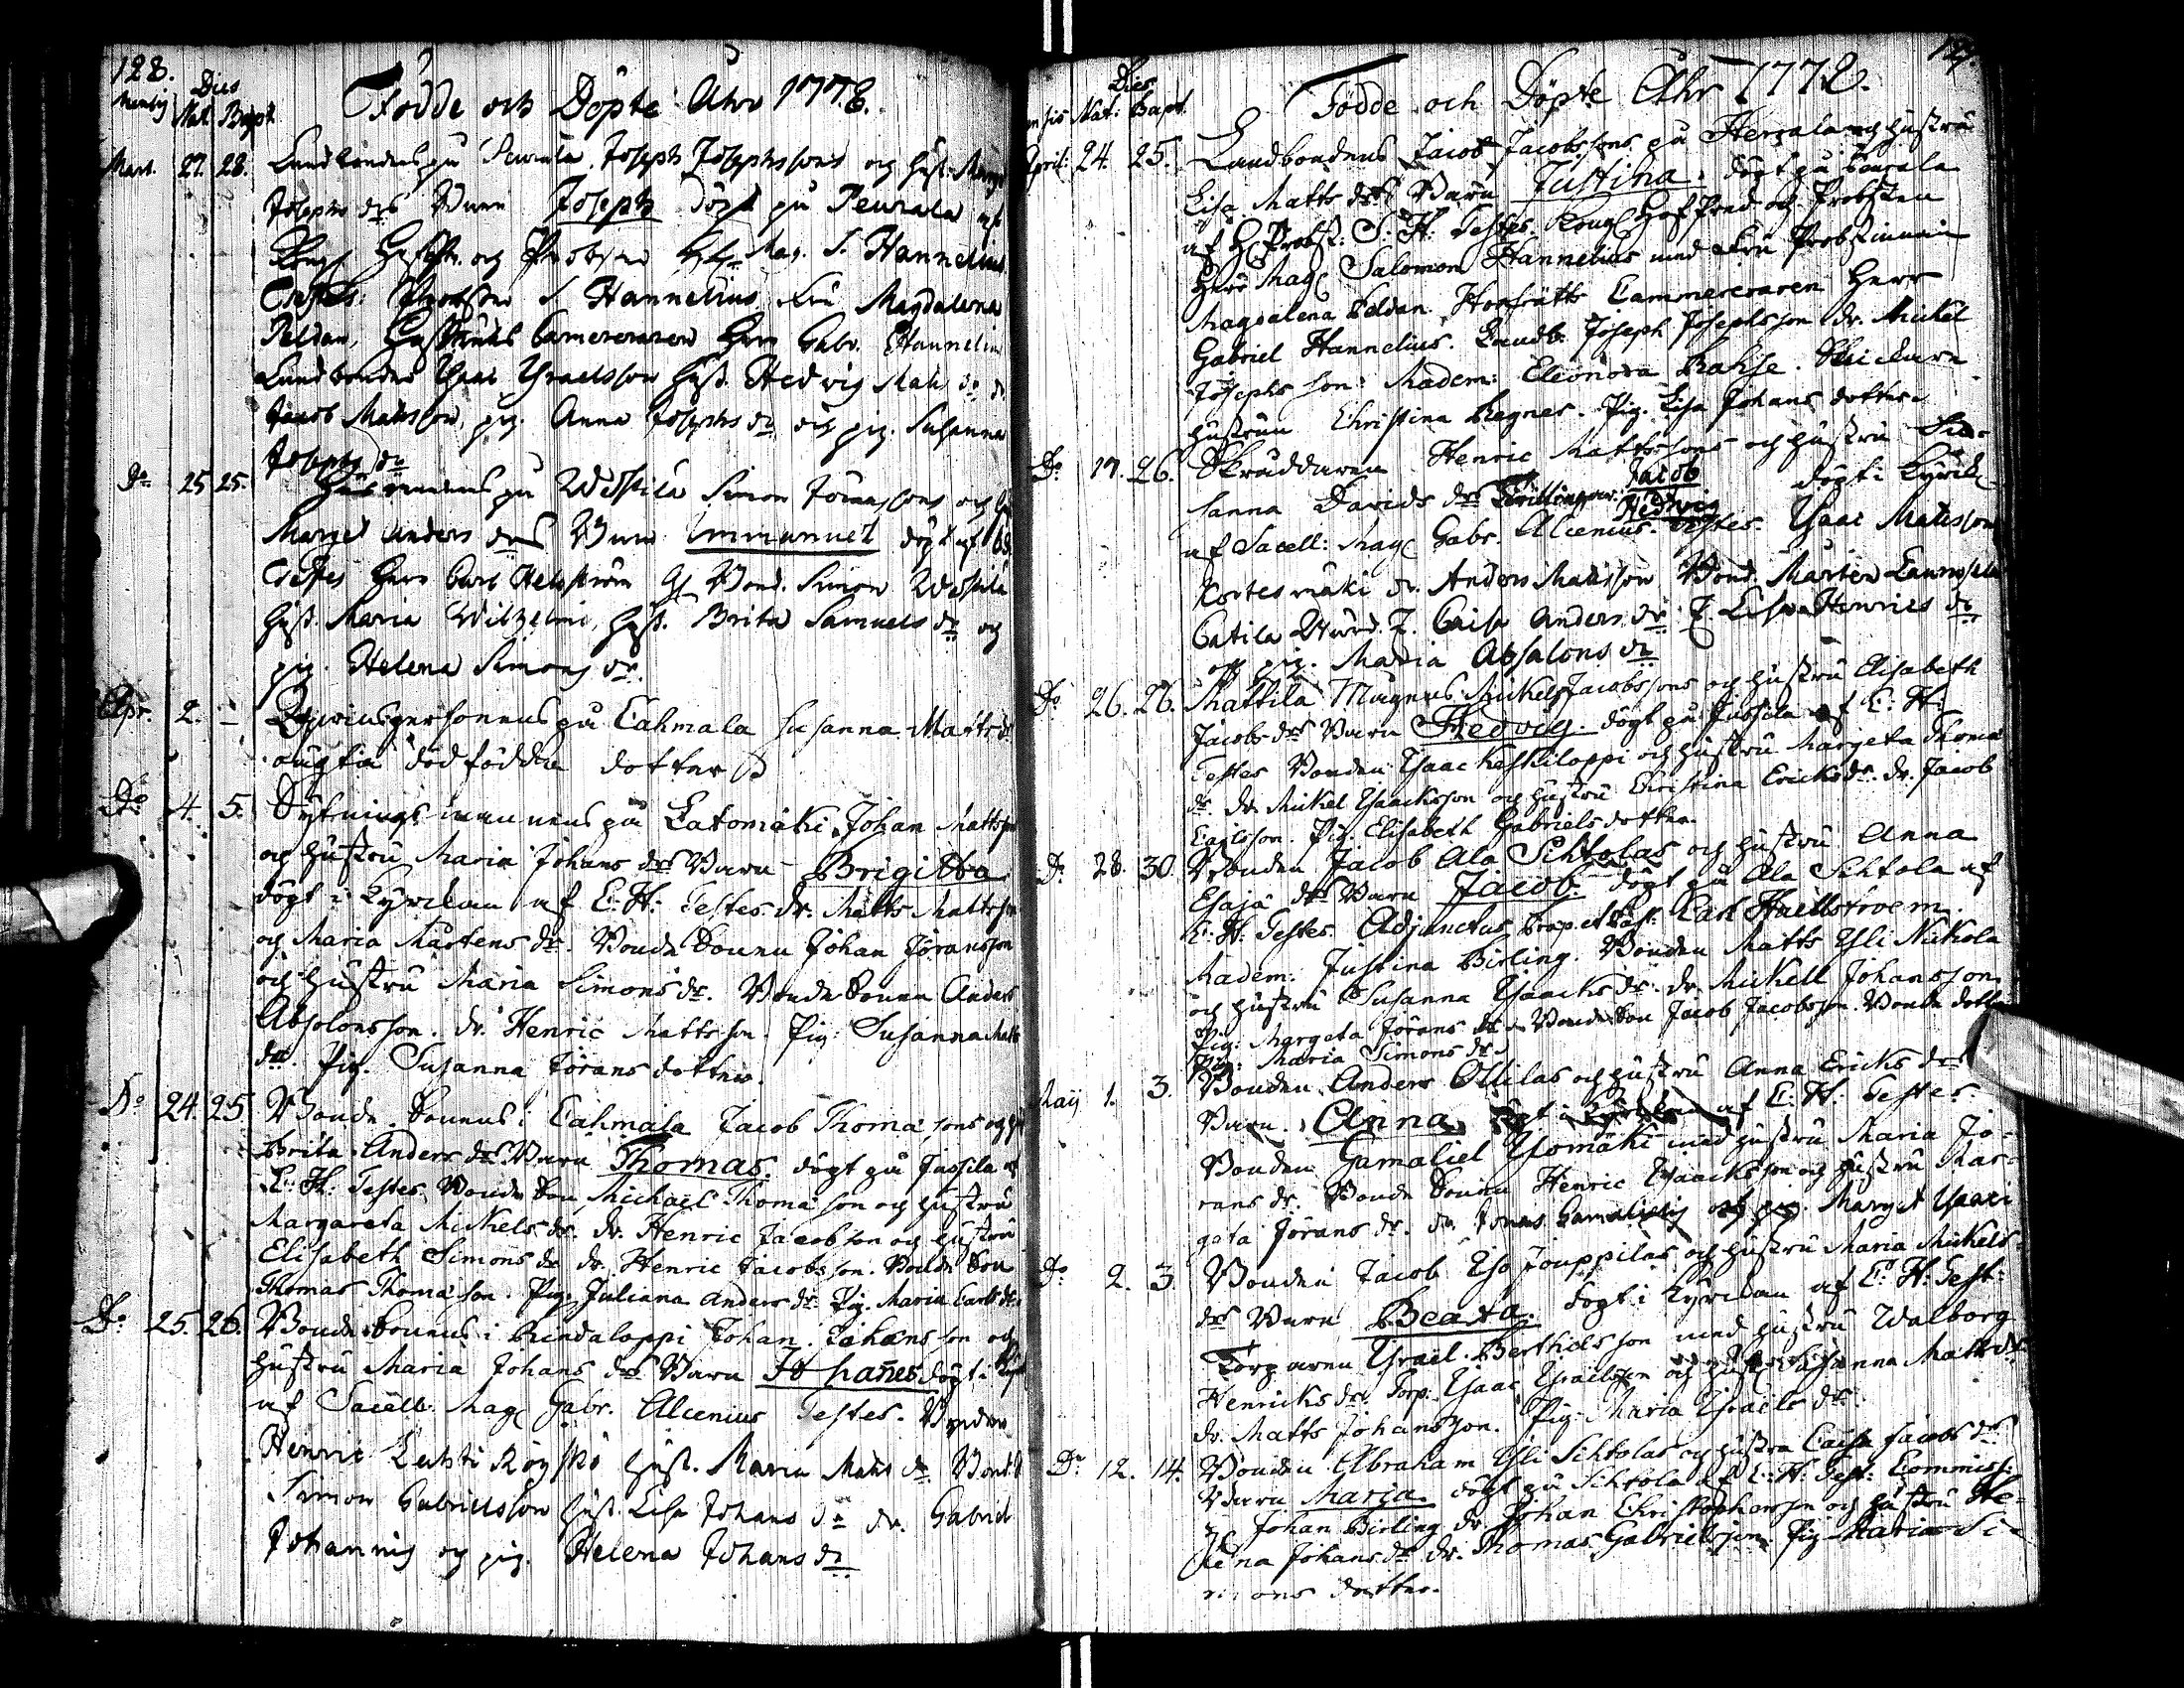 128.
Mensis Dies
Nat. Bapt.
Födde och Döpte Åhr 1772.
Mart. 27. 28. Landbondens på Peurala Joseph Josephssons och hust. Marg.
Josephs drs Barn Joseph döpt på Peurala af
Kongl. och Probsten Mag. S. Hannelius
Testes: Probsten S. Hannelius, Fru Magdalena
Peldan, Cammereraren Herr Gabr. Hannelius
Landbonden Israelsson Hust. Hedvig Matts dr
Jacob Mattsson, pig. Anna Josephs dr och pig. Susanna
Josephs dr
Do 25 25. på Wessilä Simon Tomassons och
Marget Anders drs Barn Emmanuel döpt af
Testes Herr Carl Hellström Bond. Simon Wessilä
Hust. Maria Wilhelmi, Hust. Brita Samuels dr och
pig. Helena Simons dr
Apr. 2. – på Cahmala Susanna Matts dr
dödfödda dotter
Do 4. 5. Sytningsmannens på Latomäki Johan Mattss.
och hustru Maria Johans drs Barn Brigitta
döpt i Kyrckan af E. H. Testes. dr. Matts Mattss.
och Maria Mårtens dr. Bonde Sonen Johan Jöransson
och hustru Maria Simons dr. Bonde Sonen Anders
Absolonsson. dr. Henric Mattsson. Pig. Susanna Matts
dr. Pig. Susanna Jörans dotter.
Do 24. 25. Bonde Sonens i Cahmala Jacob Thomæsons och
Brita Anders drs Barn Thomas. döpt på Jussila af
E. H. Testes Bonde Son Michael Thomæson och hustru
Margareta Mickels dr. dr. Henric Jacobsson och hustru
Elisabeth Simons dr dr. Henric Jacobsson. Bonde Son
Thomas Thomæson. Pig. Juliana Anders dr. Pig. Maria Carls dr.
Do 25. 26. Bonde Sonens i Rendaloppi Johan Johansson och
hustru Maria Johans drs Barn Johanes döpt i
af Sacell. Mag Gabr. Alcenius Testes. Bonden
Henric Hust. Maria Matts dr. Bonden
Simon Gabrielsson Hust. Lisa Johans dr dr. Gabriel
Johannis och pig. Helena Johans dr
129.
Mensis Dies
Nat: Bapt.
Födde och Döpte Åhr 1772.
April: 24. 25. Landbondens Jacob Jacobssons på Herrala och hustru
Lisa Matts drs Barn Justina. döpt på
af H. Probst. S. H. Testes. Kongl Hof Pred. och Probsten
Herr Mag Salomon Hannelius med Fru Probstinnan
Magdalena Peldan. Hofrätts Cammereraren Herr
Gabriel Hannelius. Landb. Joseph Josephsson dr. Mickel
Josephsson. Madem: Eleonora
hustrun Christina Regner. Pig. Lisa Johans dotter.
Do 17. 26. Skräddaren Henric Mattssons och hustru Su-
sanna Davids drs Tvillingar. Jacob Hedvig döpt i Kyrck.
af Sacell: Mag Gabr. Alcenius. Testes. Isaac Mattsson
Kortesmäki dr. Anders Mattsson Bond. Mårten
Caisa Anders dr Lisa Henrics dr
och pig. Maria Absalons dr
Do 26. 26. Mattila Magnus Mickel Jacobssons och hustru Elisabeth
Jacobs drs Barn Hedvig. döpt på Jussila af E. H.
Testes Bonden Isaac Keskiloppi och hustru Margeta Thomæ
dr dr. Mickel Isaacksson och hustru Christina Ericks dr. dr. Jacob
Pig. Elisabeth Gabriels dotter.
Do 28. 30. Bonden Jacob Ala Sihtolas och hustru Anna
Esajæ drs Barn Jacob. döpt på Ala Sihtola af
E. H. Testes. Adjunctus Carl Haellstroem.
Madem. Justina Birling. Bonden Matts Yli Nickola
och hustru Susanna Isaacks dr. dr. Mickell Johansson
Pig. Margeta Jörans dr. Bonde Son Jacob Jacobsson. Bonde dotter
Pig. Maria Simons dr.
Maij 1. 3. Bonden Anders Ollilas och hustru Anna Ericks drs
Barn. Anna. döpt i Kyrckan af E. H. Testes.
Bonden Gamaliel Isomäki med hustru Maria Jö-
rans dr. Bonde Sonen Henric Isaacksson och hustru Mar-
geta Jörans dr. dr. Jonas och pig. Marget Isaaci
Do 2. 3. Bonden Jacob Iso Jouppilas och hustru Maria Mickels
drs Barn Beata. döpt i Kyrckan af E. H. Test:
Torparen Israel Berthelsson med hustru Walborg
Henricks dr. Torp. Isaac Israelsson och hust. Susanna Matts dr
dr. Matts Johansson. Pig. Maria Israels dr.
Do 12. 14. Bonden Abraham Yli Sihtolas och hustru Caisa Jacobs drs
Barn Maria. döpt på Sihtola af E. H. Test: Commiss:
Johan Birling dr. Johan Christophersson och hustru He-
lena Johans dr dr. Thomas Gabrielsson. Pig. Maria Si-
mons dotter.